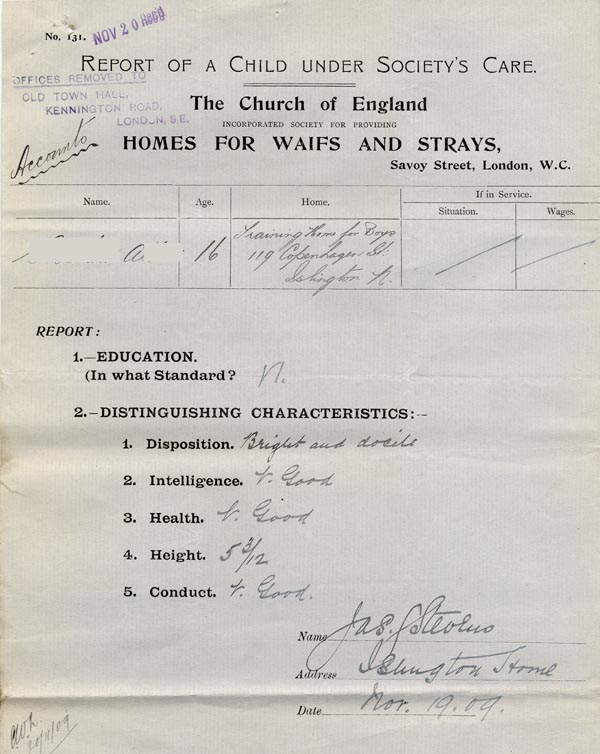 No. 131.
NOV 20 Recd
REPORT OF A CHILD UNDER SOCIETY'S CARE.
OFFICES REMOVED TO
OLD TOWN HALL,
KENNINGTON ROAD,
LONDON, S.E.
Accounts
The Church of England
INCORPORATED SOCIETY FOR PROVIDING
HOMES FOR WAIFS AND STRAYS,
Savoy Street, London, W.C.
Name. Age. Home. If in Service.
Situation. Wages.
16 Training Home for Boys
119 Copenhagen St.
Islington N.
REPORT:
1.—EDUCATION.
(In what Standard? VI.
2.—DISTINGUISHING CHARACTERISTICS:—
1. Disposition. Bright and docile
2. Intelligence. V. Good
3. Health. V. Good
4. Height. 5 3/12
5. Conduct. V. Good.
Name Jas. J Stevens
Address Islington Home
Date Nov. 19. 09.
20/11/09